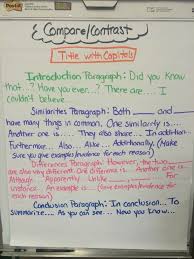 Post-it
Compare/Contrast
Title with Capitals
Introduction Paragraph: Did you know
that...? Have you ever...? There are.... I
couldn't believe....
Similarities Paragraph: Both ___ and ___
have many things in common. One similarity is....
Another one is.... They also share... In addition...
Furthermore... Also... Alike... Additionally, (Make
sure you give examples/evidence for each reason)
Differences Paragraph: However, the two ___
are also very different. One difference is... Another one is
Although Apparently Unlike ___, ___. For
instance An example is.... (Give examples/evidence for
each reason)
Conclusion Paragraph: In conclusion... To
summarize.... As you can see... Now you know...